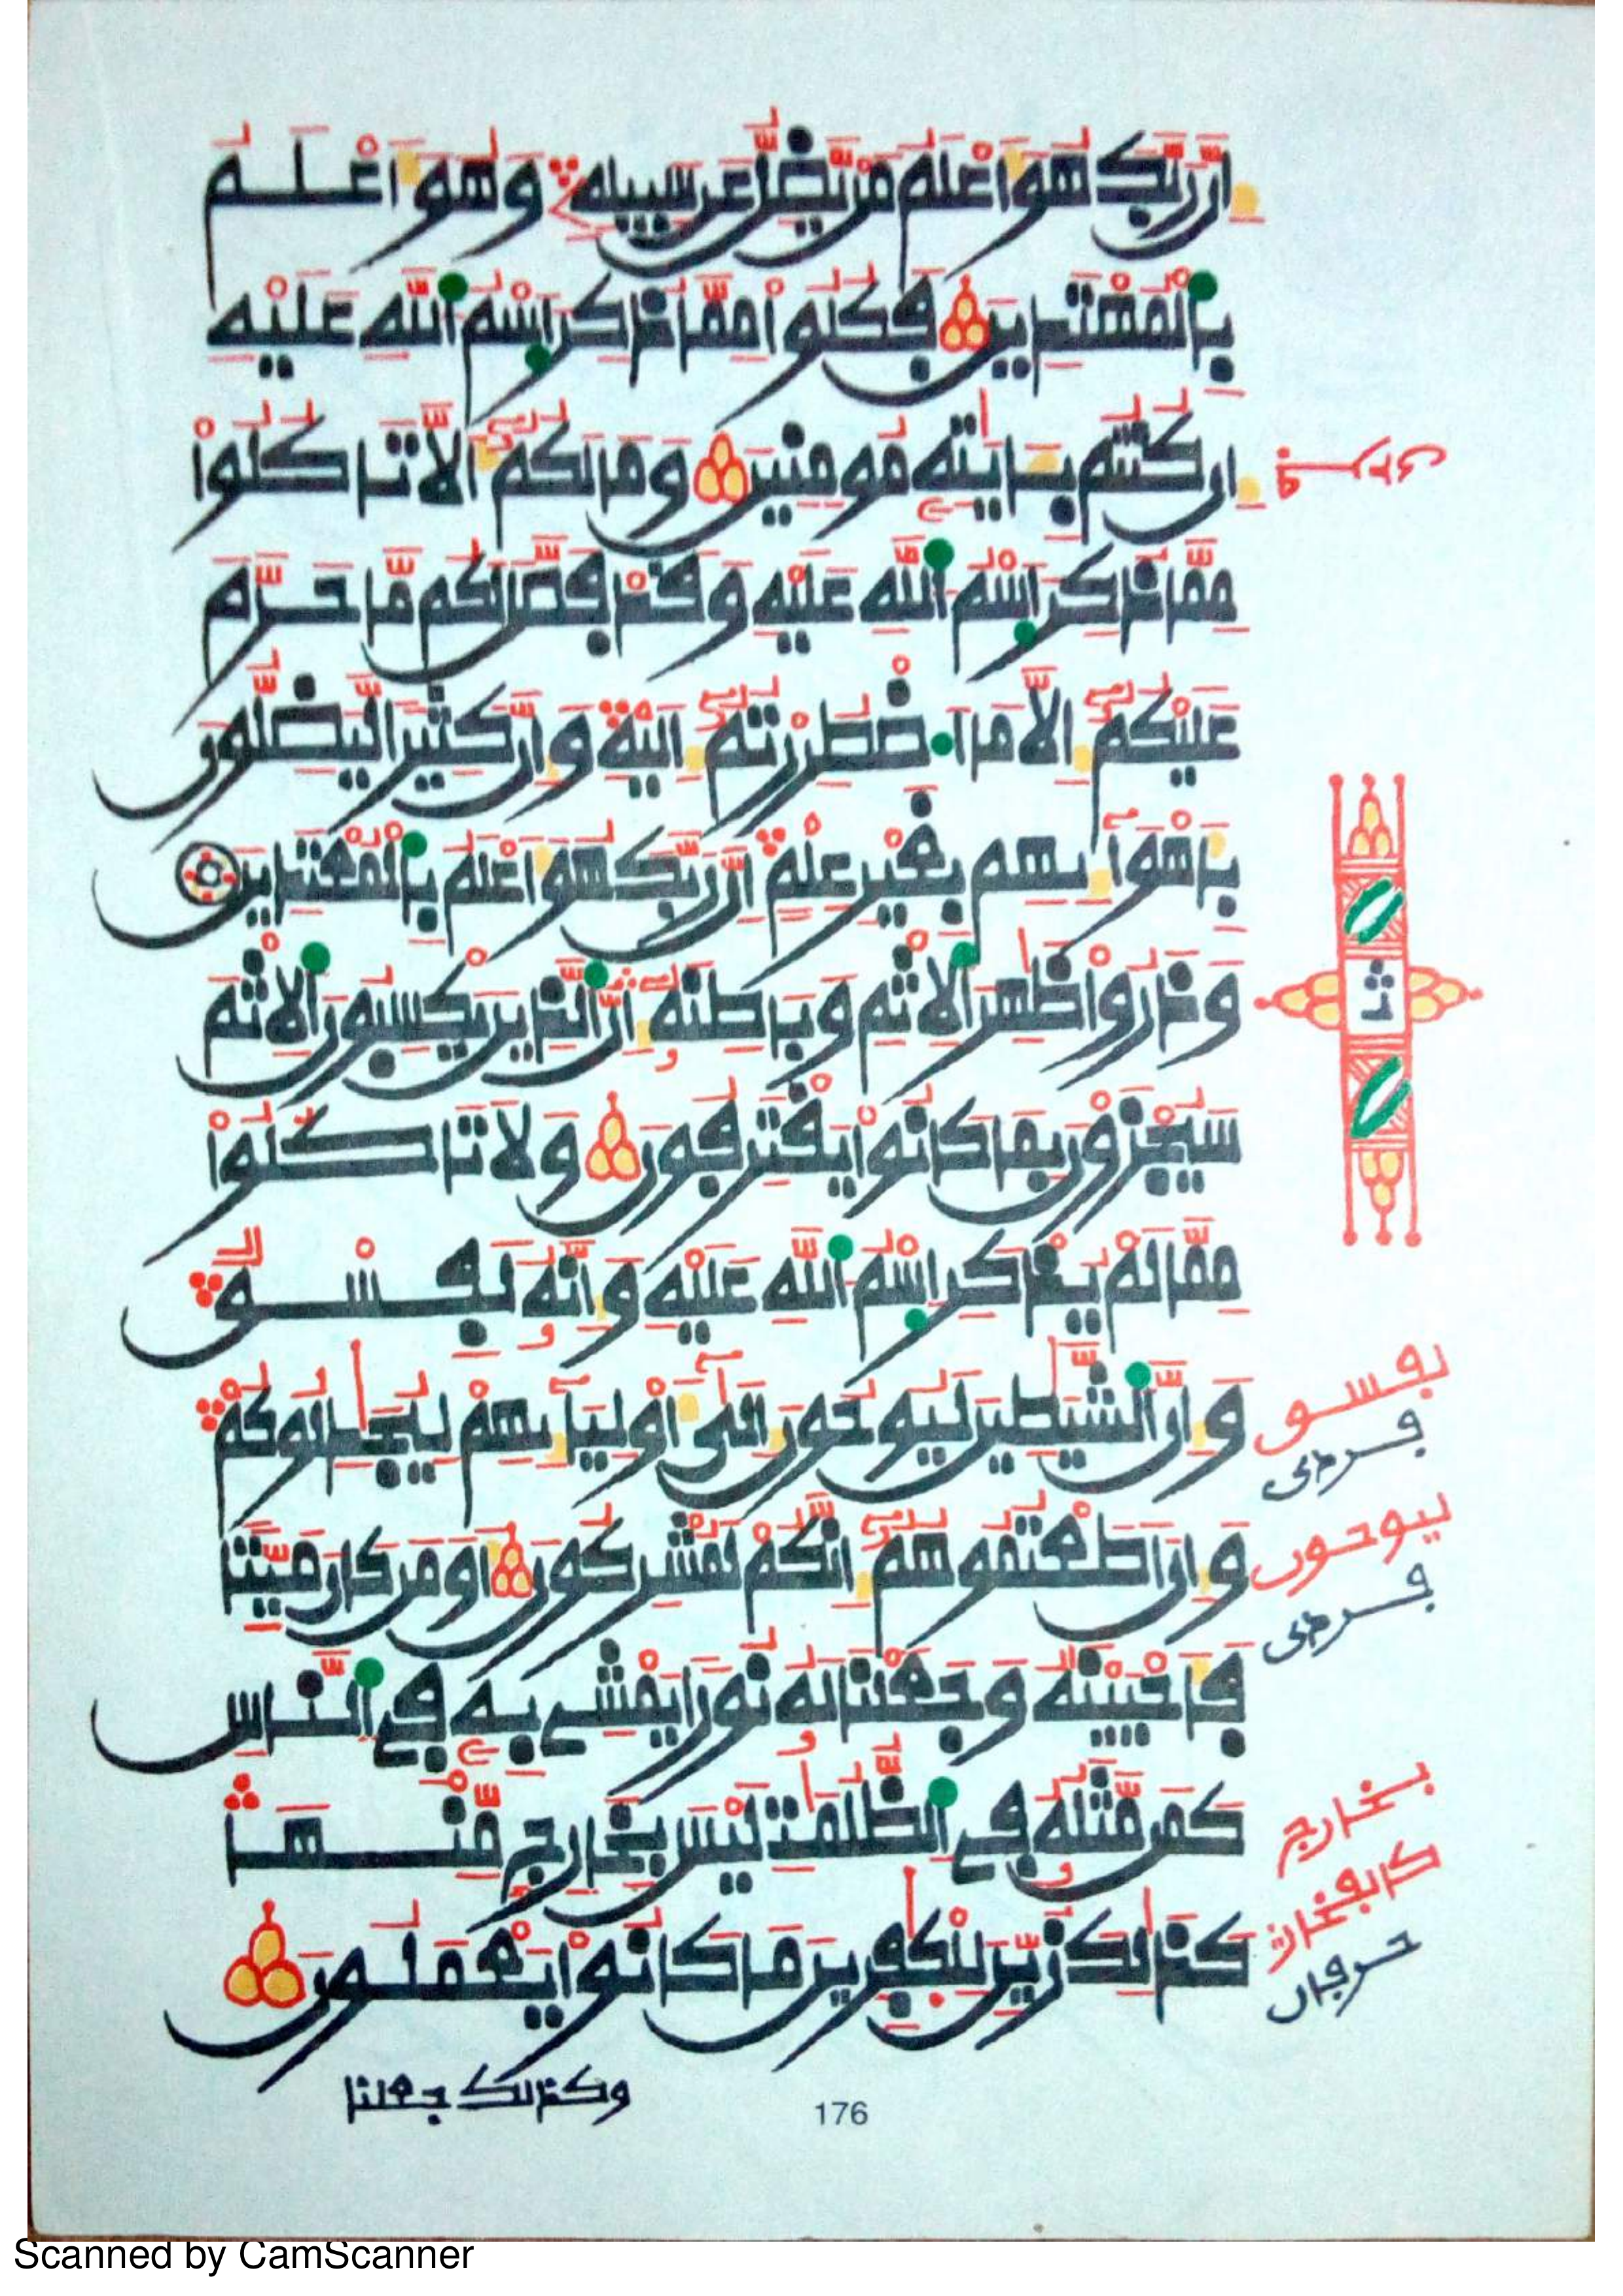 إِنَّ رَبَّكَ هُوَ أَعْلَمُ مَنْ يَّضِلُّ عَن سَبِيلِهِ وَهُوَ أَعْلَمُ
بِالْمُهْتَدِينَ فَكُلُوا مِمَّا ذُكِرَ اسْمُ اللَّهِ عَلَيْهِ
إِن كُنتُم بِـَٔايَٰتِهِ مُومِنِينَ وَمَا لَكُمُ أَلَّا تَاكُلُوا
مِمَّا ذُكِرَ اسْمُ اللَّهِ عَلَيْهِ وَقَدْ فَصَّلَ لَكُم مَّا حَرَّمَ
عَلَيْكُمُ إِلَّا مَا اضْطُرِرْتُمُ إِلَيْهِ وَإِنَّ كَثِيرًا لَّيَضِلُّونَ
بِأَهْوَآئِهِم بِغَيْرِ عِلْمٍ إِنَّ رَبَّكَ هُوَ أَعْلَمُ بِالْمُعْتَدِينَ
وَذَرُوا ظَٰهِرَ الْإِثْمِ وَبَاطِنَهُ إِنَّ الَّذِينَ يَكْسِبُونَ الْإِثْمَ
سَيُجْزَوْنَ بِمَا كَانُوا يَقْتَرِفُونَ وَلَا تَاكُلُوا
مِمَّا لَمْ يُذْكَرِ اسْمُ اللَّهِ عَلَيْهِ وَإِنَّهُ لَفِسْقٌ
وَإِنَّ الشَّيَٰطِينَ لَيُوحُونَ إِلَىٰ أَوْلِيَآئِهِمْ لِيُجَٰدِلُوكُمْ
وَإِنْ أَطَعْتُمُوهُمُ إِنَّكُمْ لَمُشْرِكُونَ أَوَمَن كَانَ مَيِّتًا
فَأَحْيَيْنَٰهُ وَجَعَلْنَا لَهُ نُورًا يَمْشِي بِهِ فِي النَّاسِ
كَمَن مَّثَلُهُ فِي الظُّلُمَٰتِ لَيْسَ بِخَارِجٍ مِّنْهَا
كَذَٰلِكَ زُيِّنَ لِلْكَٰفِرِينَ مَا كَانُوا يَعْمَلُونَ
وكذلك جعلنا
ثمن
لفسق
ليوحون
بخارج
حرفان
176
Scanned by CamScanner